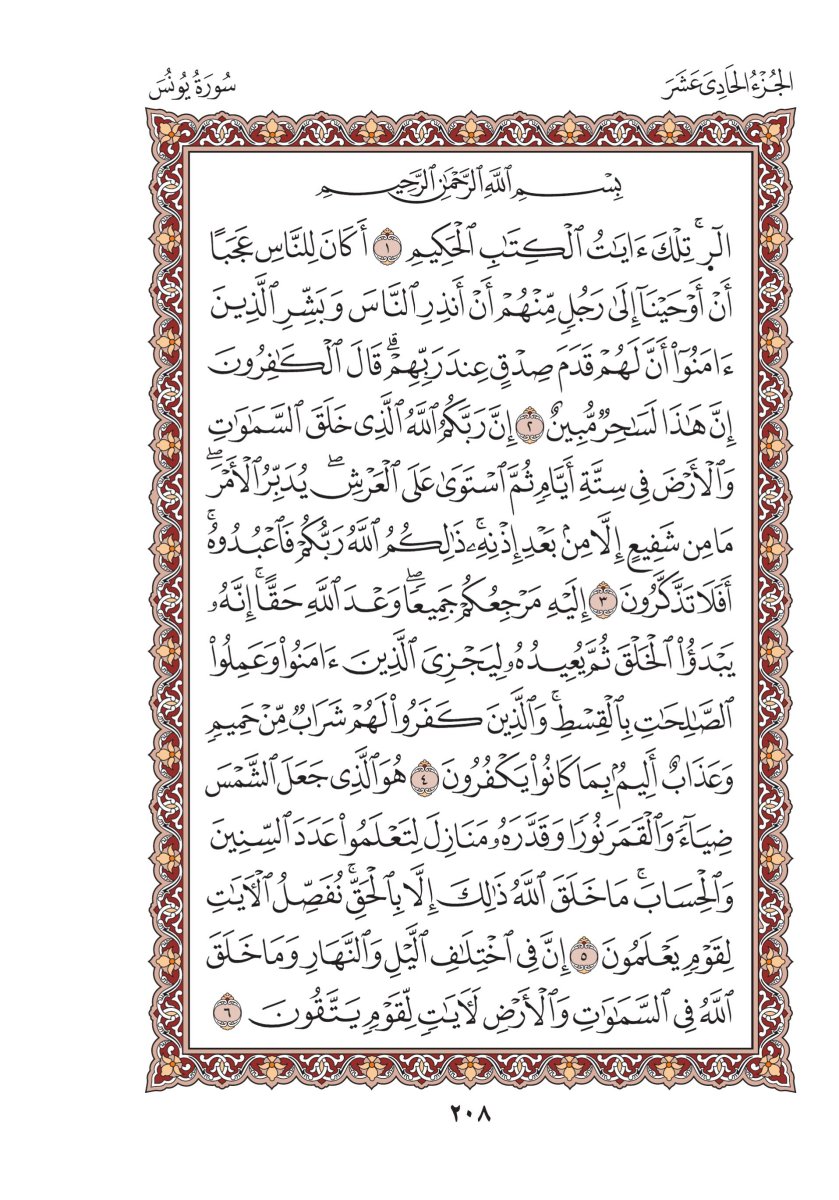 الجُزْءُ الحَادِيَ عَشَرَ
سُورَةُ يُونُسَ
بِسْمِ ٱللَّهِ ٱلرَّحْمَٰنِ ٱلرَّحِيمِ
الٓرۚ تِلْكَ ءَايَٰتُ ٱلْكِتَٰبِ ٱلْحَكِيمِ ١ أَكَانَ لِلنَّاسِ عَجَبًا
أَنْ أَوْحَيْنَآ إِلَىٰ رَجُلٍ مِّنْهُمْ أَنْ أَنذِرِ ٱلنَّاسَ وَبَشِّرِ ٱلَّذِينَ
ءَامَنُوٓا۟ أَنَّ لَهُمْ قَدَمَ صِدْقٍ عِندَ رَبِّهِمْۗ قَالَ ٱلْكَٰفِرُونَ
إِنَّ هَٰذَا لَسَٰحِرٌ مُّبِينٌ ٢ إِنَّ رَبَّكُمُ ٱللَّهُ ٱلَّذِى خَلَقَ ٱلسَّمَٰوَٰتِ
وَٱلْأَرْضَ فِى سِتَّةِ أَيَّامٍ ثُمَّ ٱسْتَوَىٰ عَلَى ٱلْعَرْشِۖ يُدَبِّرُ ٱلْأَمْرَۖ
مَا مِن شَفِيعٍ إِلَّا مِنۢ بَعْدِ إِذْنِهِۦۚ ذَٰلِكُمُ ٱللَّهُ رَبُّكُمْ فَٱعْبُدُوهُۚ
أَفَلَا تَذَكَّرُونَ ٣ إِلَيْهِ مَرْجِعُكُمْ جَمِيعًاۖ وَعْدَ ٱللَّهِ حَقًّاۚ إِنَّهُۥ
يَبْدَؤُا۟ ٱلْخَلْقَ ثُمَّ يُعِيدُهُۥ لِيَجْزِىَ ٱلَّذِينَ ءَامَنُوا۟ وَعَمِلُوا۟
ٱلصَّٰلِحَٰتِ بِٱلْقِسْطِۚ وَٱلَّذِينَ كَفَرُوا۟ لَهُمْ شَرَابٌ مِّنْ حَمِيمٍ
وَعَذَابٌ أَلِيمٌۢ بِمَا كَانُوا۟ يَكْفُرُونَ ٤ هُوَ ٱلَّذِى جَعَلَ ٱلشَّمْسَ
ضِيَآءً وَٱلْقَمَرَ نُورًا وَقَدَّرَهُۥ مَنَازِلَ لِتَعْلَمُوا۟ عَدَدَ ٱلسِّنِينَ
وَٱلْحِسَابَۚ مَا خَلَقَ ٱللَّهُ ذَٰلِكَ إِلَّا بِٱلْحَقِّۚ نُفَصِّلُ ٱلْءَايَٰتِ
لِقَوْمٍ يَعْلَمُونَ ٥ إِنَّ فِى ٱخْتِلَٰفِ ٱلَّيْلِ وَٱلنَّهَارِ وَمَا خَلَقَ
ٱللَّهُ فِى ٱلسَّمَٰوَٰتِ وَٱلْأَرْضِ لَءَايَٰتٍ لِّقَوْمٍ يَتَّقُونَ ٦
٢٠٨